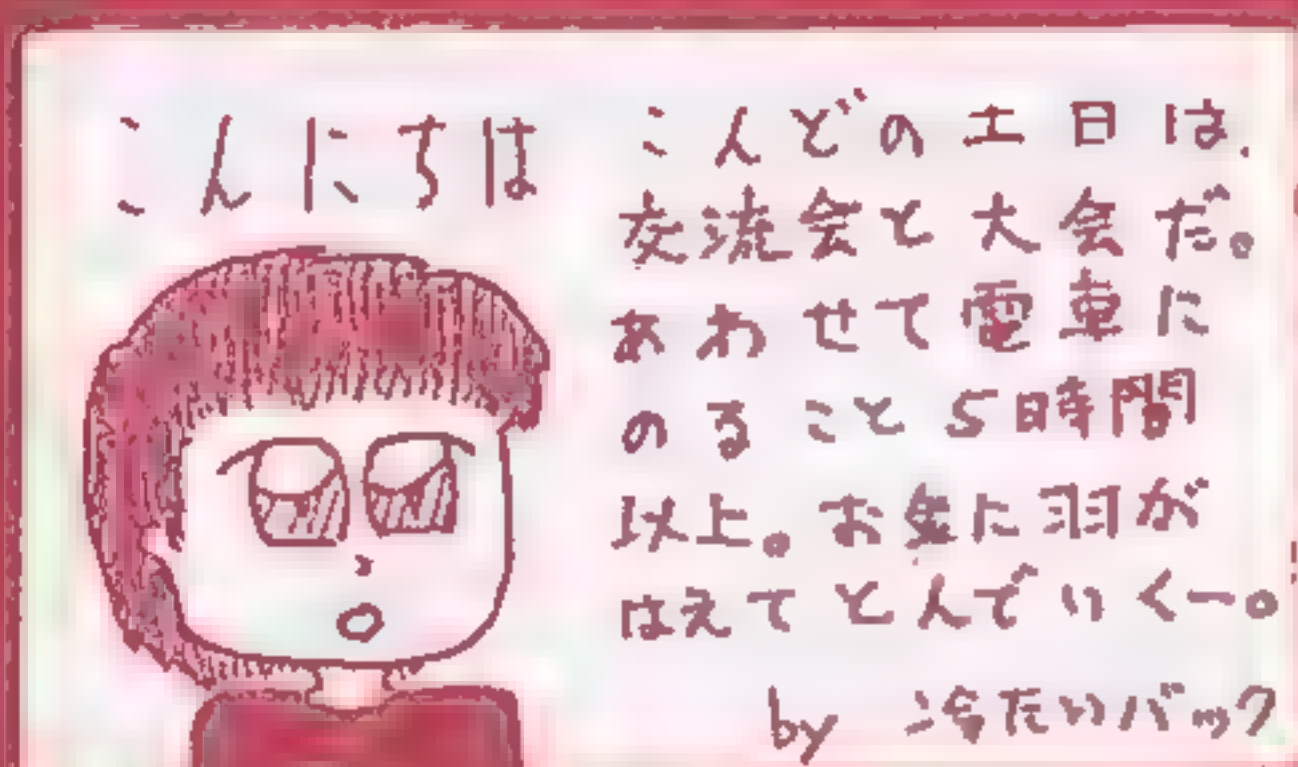 こんにちは
こんどの土日は、
交流会と大会だ。
あわせて電車に
のること5時間
以上。お金に羽が
はえてとんでいくー。
by 冷たいパック